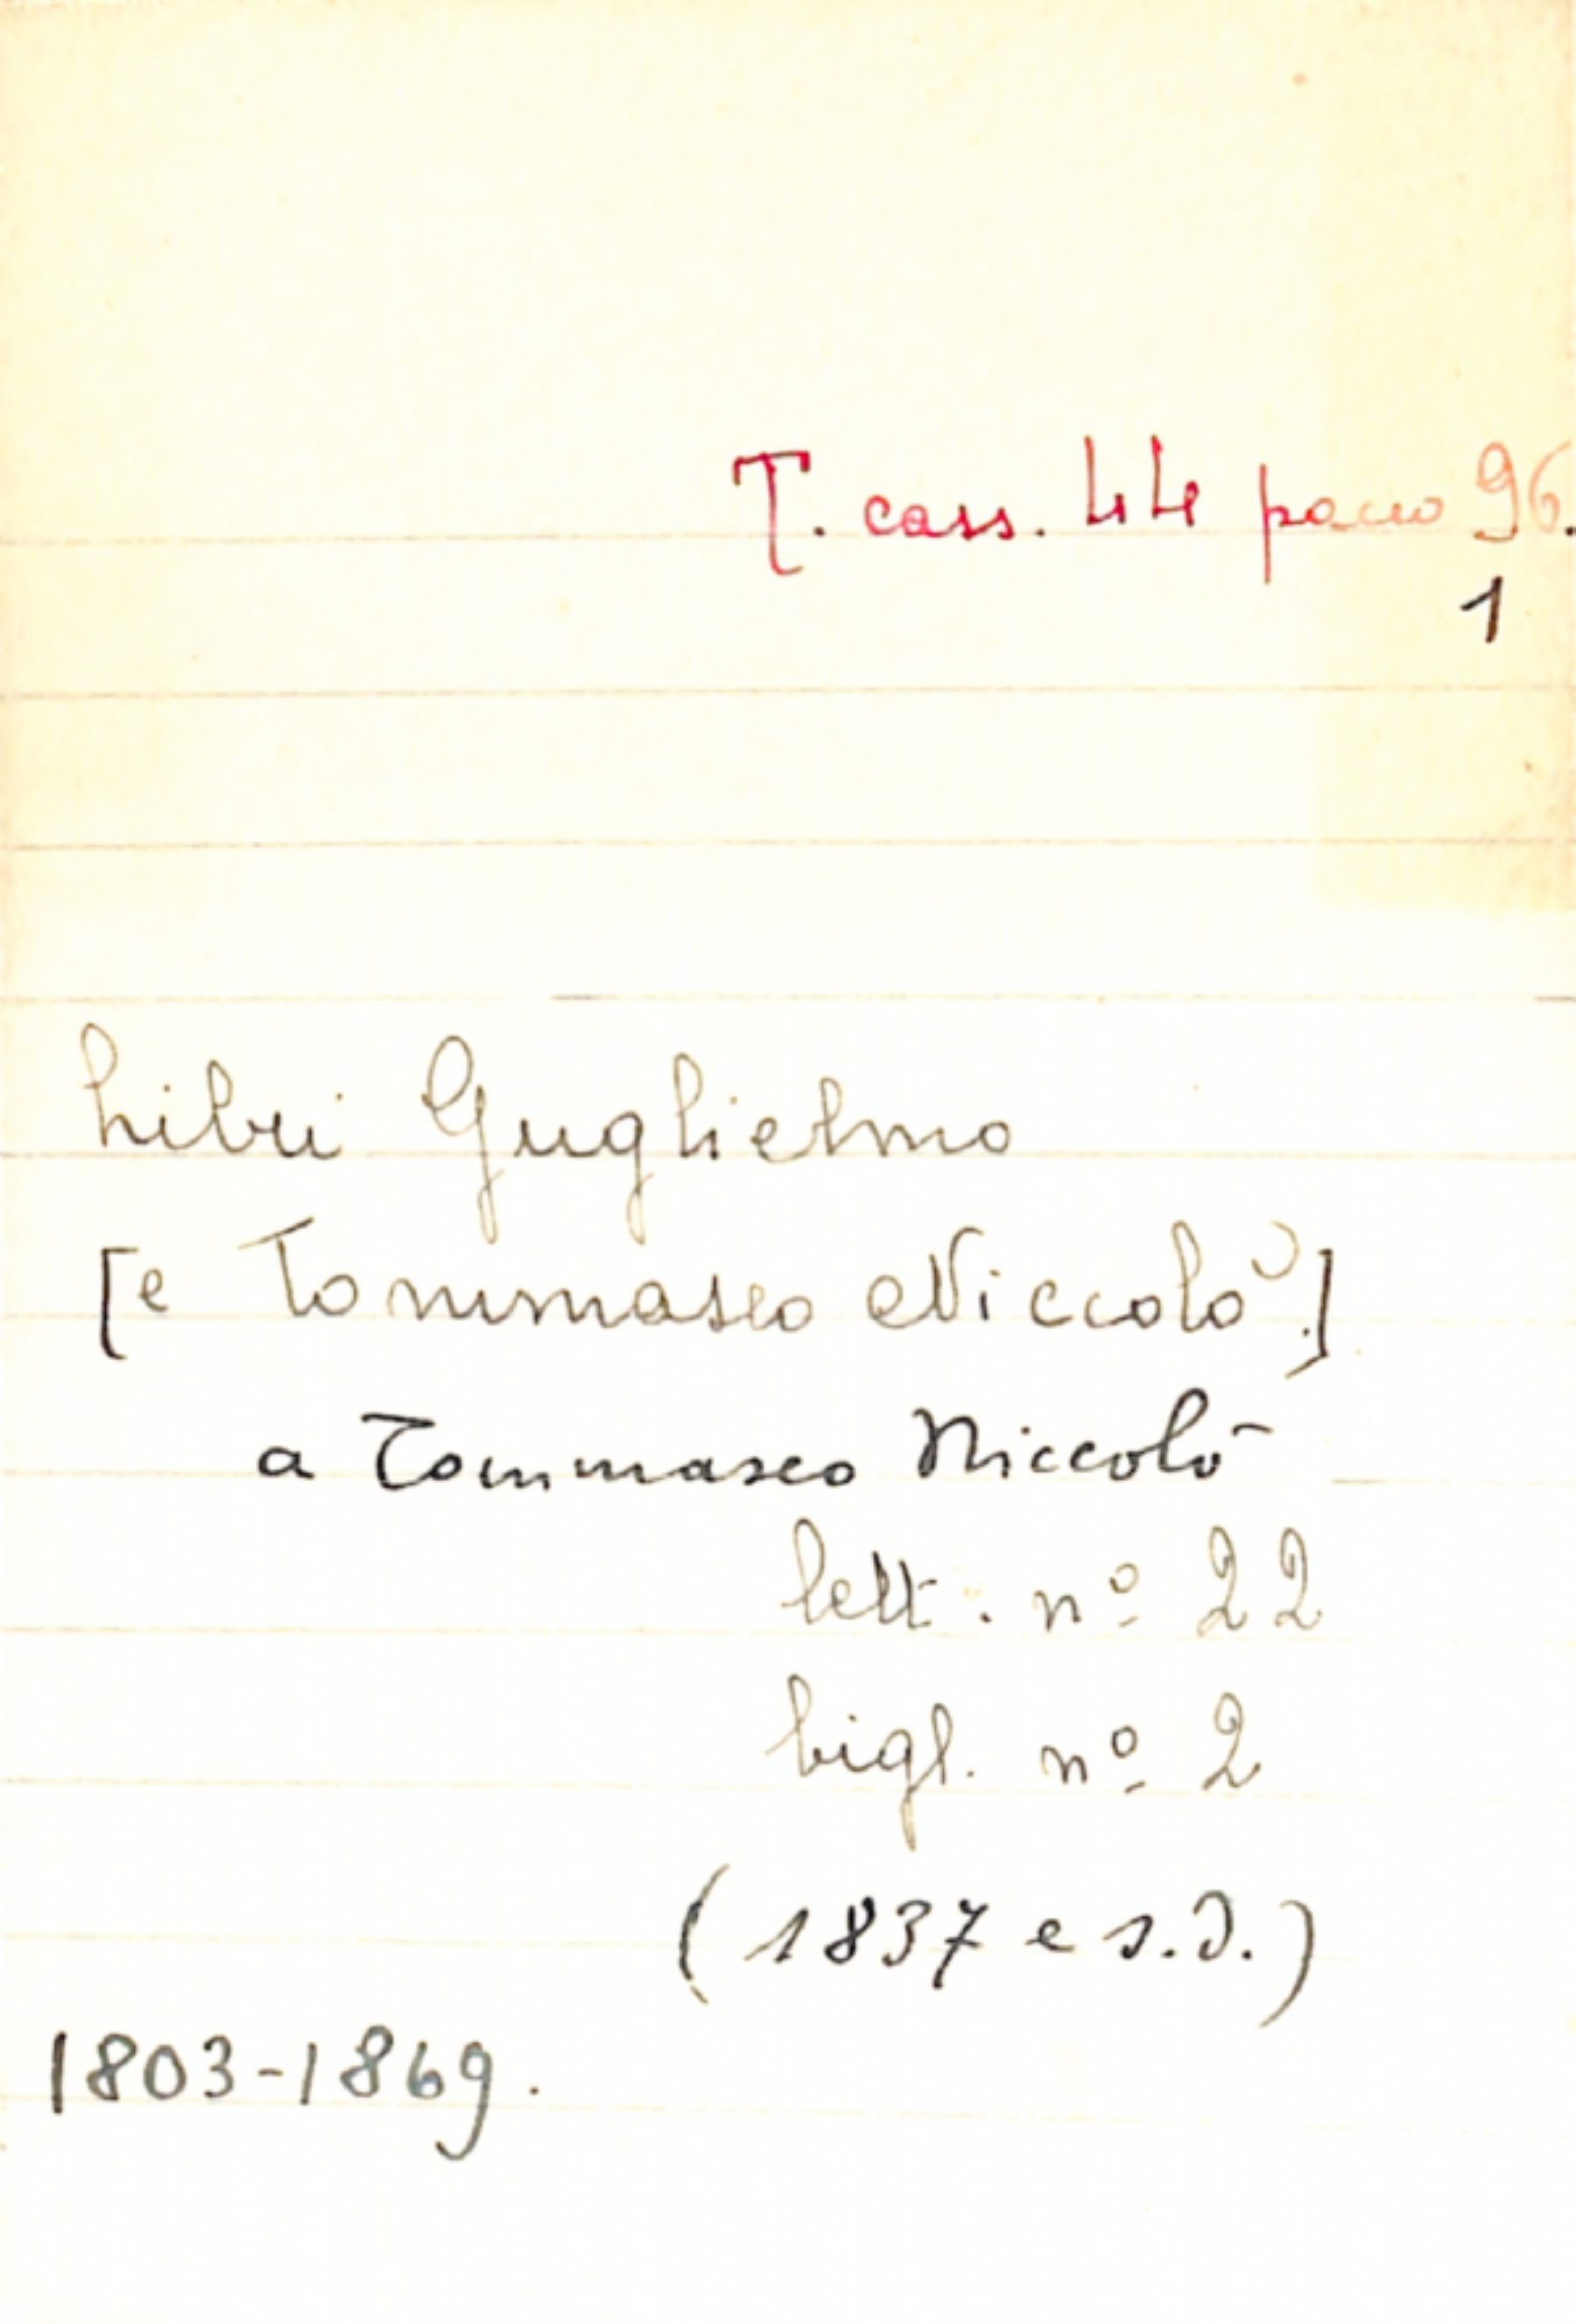 T. cass. 44 pacco 96.
1
Libri Guglielmo
[e Tommaseo Niccolò.]
a Tommaseo Niccolò
lett. nº 22
bigl. nº 2
(1837 e s.d.)
1803-1869.